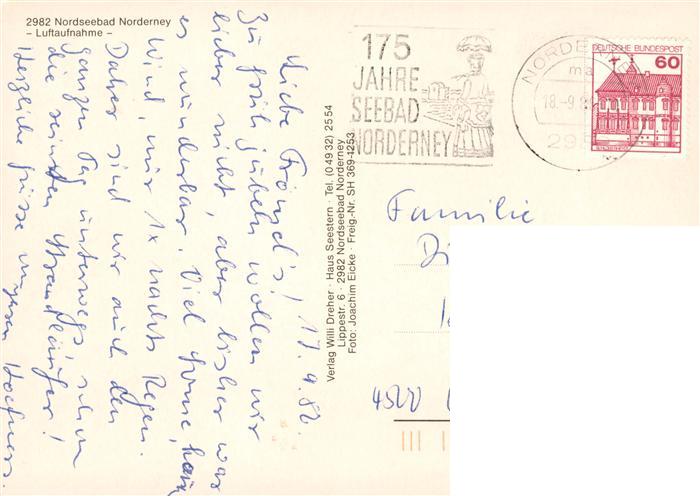 2982 Nordseebad Norderney
– Luftaufnahme –
Liebe 17.9.82.
Zu früh jubeln wollen wir
lieber nicht, aber bisher war
es wunderbar. Viel Sonne, kaum
Wind, nur 1x nachts Regen.
Daher sind wir auch den
ganzen Tag unterwegs, schon
die reinsten Strandläufer!
Herzliche Grüsse
Verlag Willi Dreher · Haus Seestern · Tel. (0 49 32) 25 54
Lippestr. 6 · 2982 Nordseebad Norderney
Foto: Joachim Eicke · Freig.-Nr. SH 369-1253
175
JAHRE
SEEBAD
NORDERNEY
NORDERNEY
18.-9.82
DEUTSCHE BUNDESPOST
60
Familie
4500